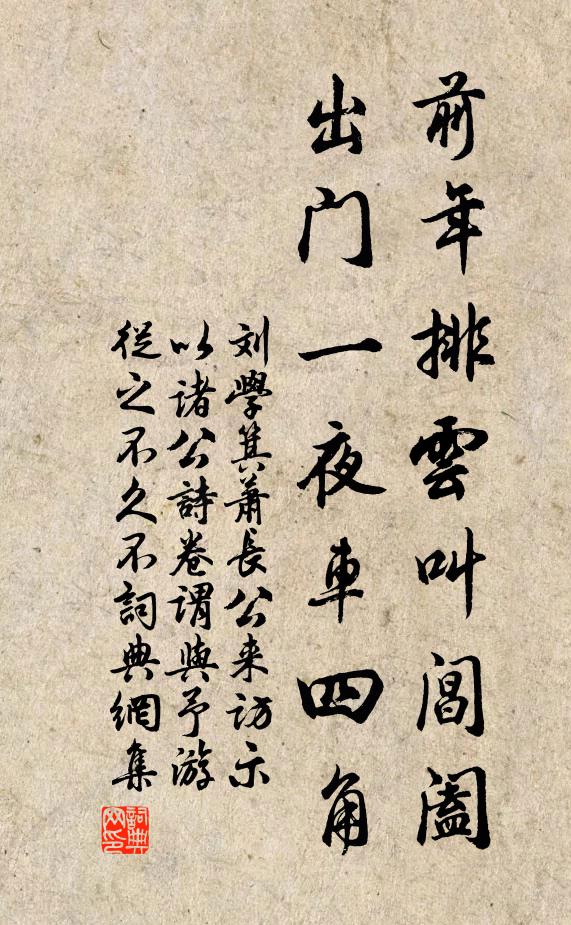 前年排雲叫閶闔
出门一夜車四角
刘學箕蕭長公来訪示
以諸公詩卷謂與予游
從之不久不詞典網集
詞典
网印